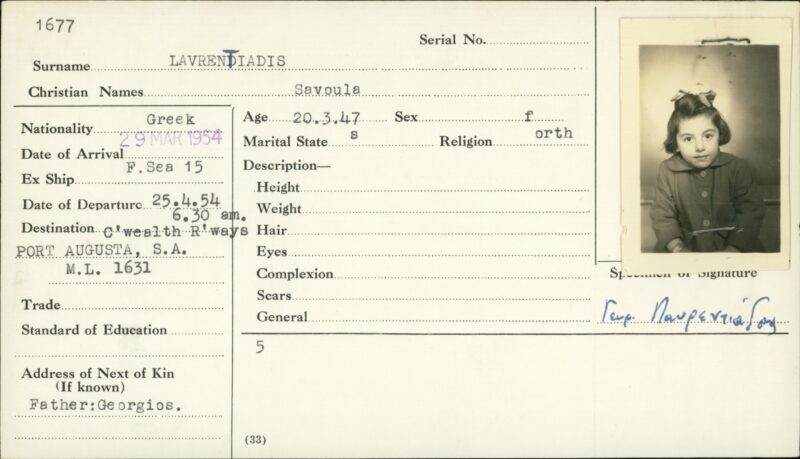 1677
Serial No.
Surname LAVRENTIADIS
Christian Names Savoula
Nationality Greek
Date of Arrival 29 MAR 1954
Ex Ship F.Sea 15
Date of Departure 25.4.54
6.30 am.
Destination C'wealth R'ways
PORT AUGUSTA, S.A.
M.L. 1631
Trade
Standard of Education
Address of Next of Kin
(If known)
Father:Georgios.
Age 20.3.47 Sex f
Marital State s Religion orth
Description—
Height
Weight
Hair
Eyes
Complexion
Scars
General
5
(33)
Specimen of Signature
Γεωρ. Λαυρεντιάδης